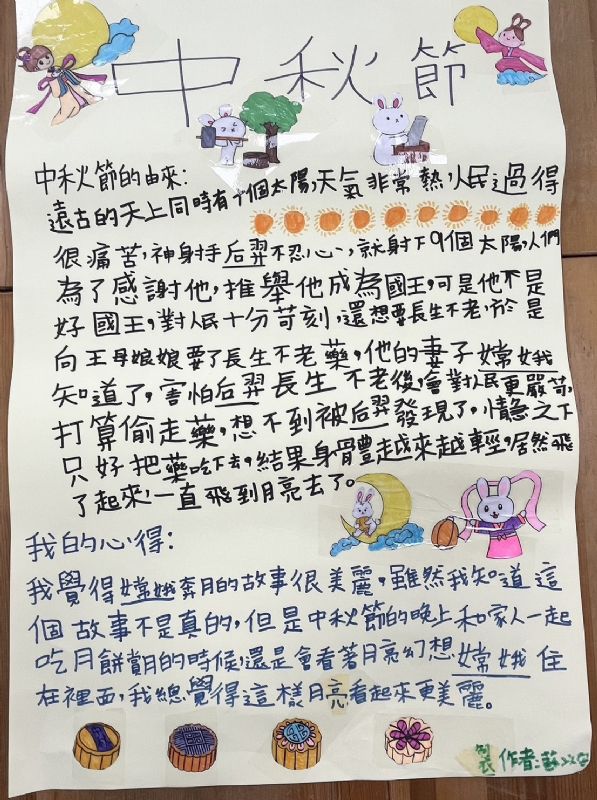 中秋節
中秋節的由來:
遠古的天上同時有十個太陽,天氣非常熱,人民過得
很痛苦,神射手后羿不忍心,就射下9個太陽,人們
為了感謝他,推舉他成為國王,可是他不是
好國王,對人民十分苛刻,還想要長生不老,於是
向王母娘娘要了長生不老藥,他的妻子嫦娥
知道了,害怕后羿長生不老後,會對人民更嚴苛,
打算偷走藥,想不到被后羿發現了,情急之下
只好把藥吃下去,結果身體越來越輕,居然飛
了起來,一直飛到月亮去了。
我的心得:
我覺得嫦娥奔月的故事很美麗,雖然我知道這
個故事不是真的,但是中秋節的晚上和家人一起
吃月餅賞月的時候,還是會看著月亮幻想嫦娥住
在裡面,我總覺得這樣月亮看起來更美麗。
作者:蘇